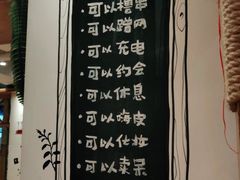 ·可以撸串
·可以蹭网
·可以充电
·可以约会
·可以休息
·可以嗨皮
·可以化妆
·可以卖呆